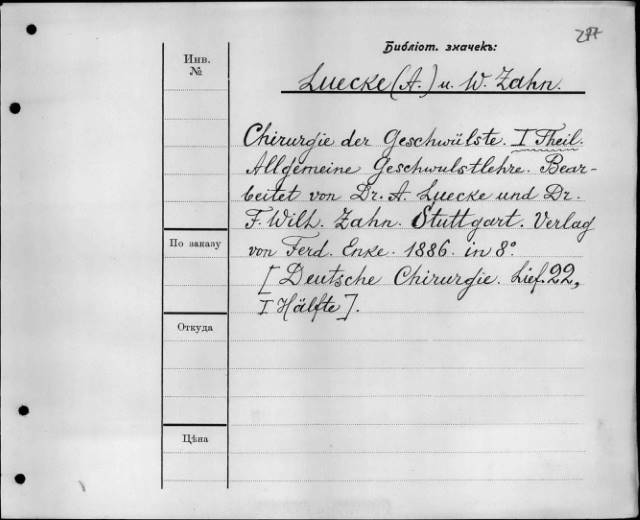 Библіот. значекъ:
Инв.
№
Luecke (A.) u. W. Zahn.
Chirurgie der Geschwülste. I Theil.
Allgemeine Geschwulstlehre. Bear-
beitet von Dr. A. Luecke und Dr.
F. Wilh. Zahn. Stuttgart. Verlag
По заказу
von Ferd. Enke. 1886. in 8°
[Deutsche Chirurgie. Lief. 22,
I Hälfte].
Откуда
Цѣна